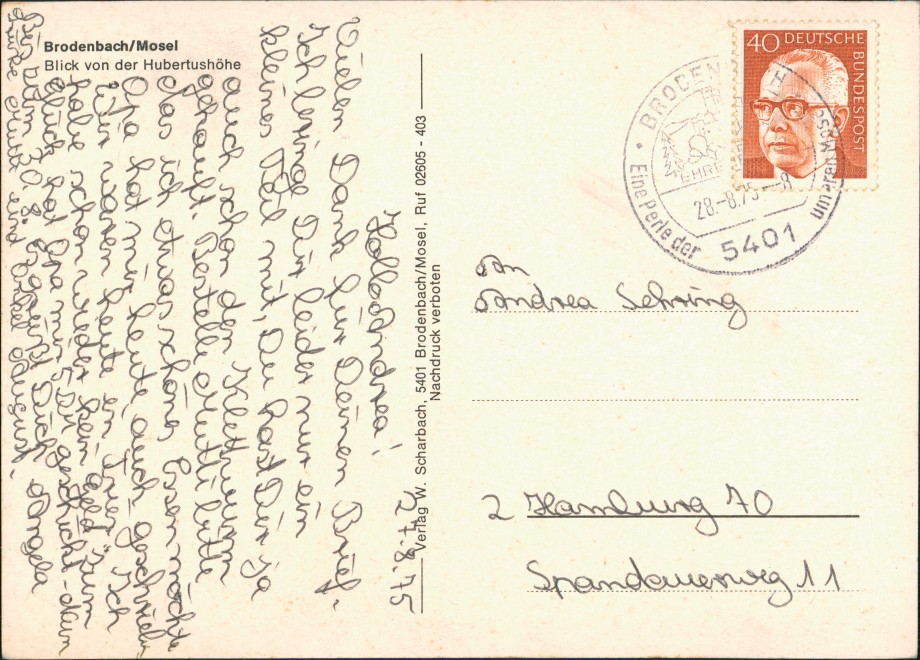 Brodenbach/Mosel
Blick von der Hubertushöhe
27.8.75
Hallo Andrea!
Vielen Dank für Deinen Brief.
Ich bringe Dir leider nur ein
kleines Teil mit, Du hast Dir ja
auch schon den Kletturm
gekauft. Bestelle Mutti bitte
das ich etwas schönes Essen möchte
Opa hat mir heute auch geschrieben
Wir waren heute in Trier. Ich
habe schon wieder kein Geld zum
Glück hat Opa mir 5 DM geschickt dann
Bis zum 30.8. grüßt Dich
Grüße Mutti und August.
Angela
Verlag W. Scharbach, 5401 Brodenbach/Mosel, Ruf 02605 - 403
Nachdruck verboten
40 DEUTSCHE BUNDESPOST
BRODEN
EHRE
28.-8.75--8
5401
Eine Perle der unteren Mosel
An
Andrea Sehring
2 Hamburg 70
Spandauerweg 11